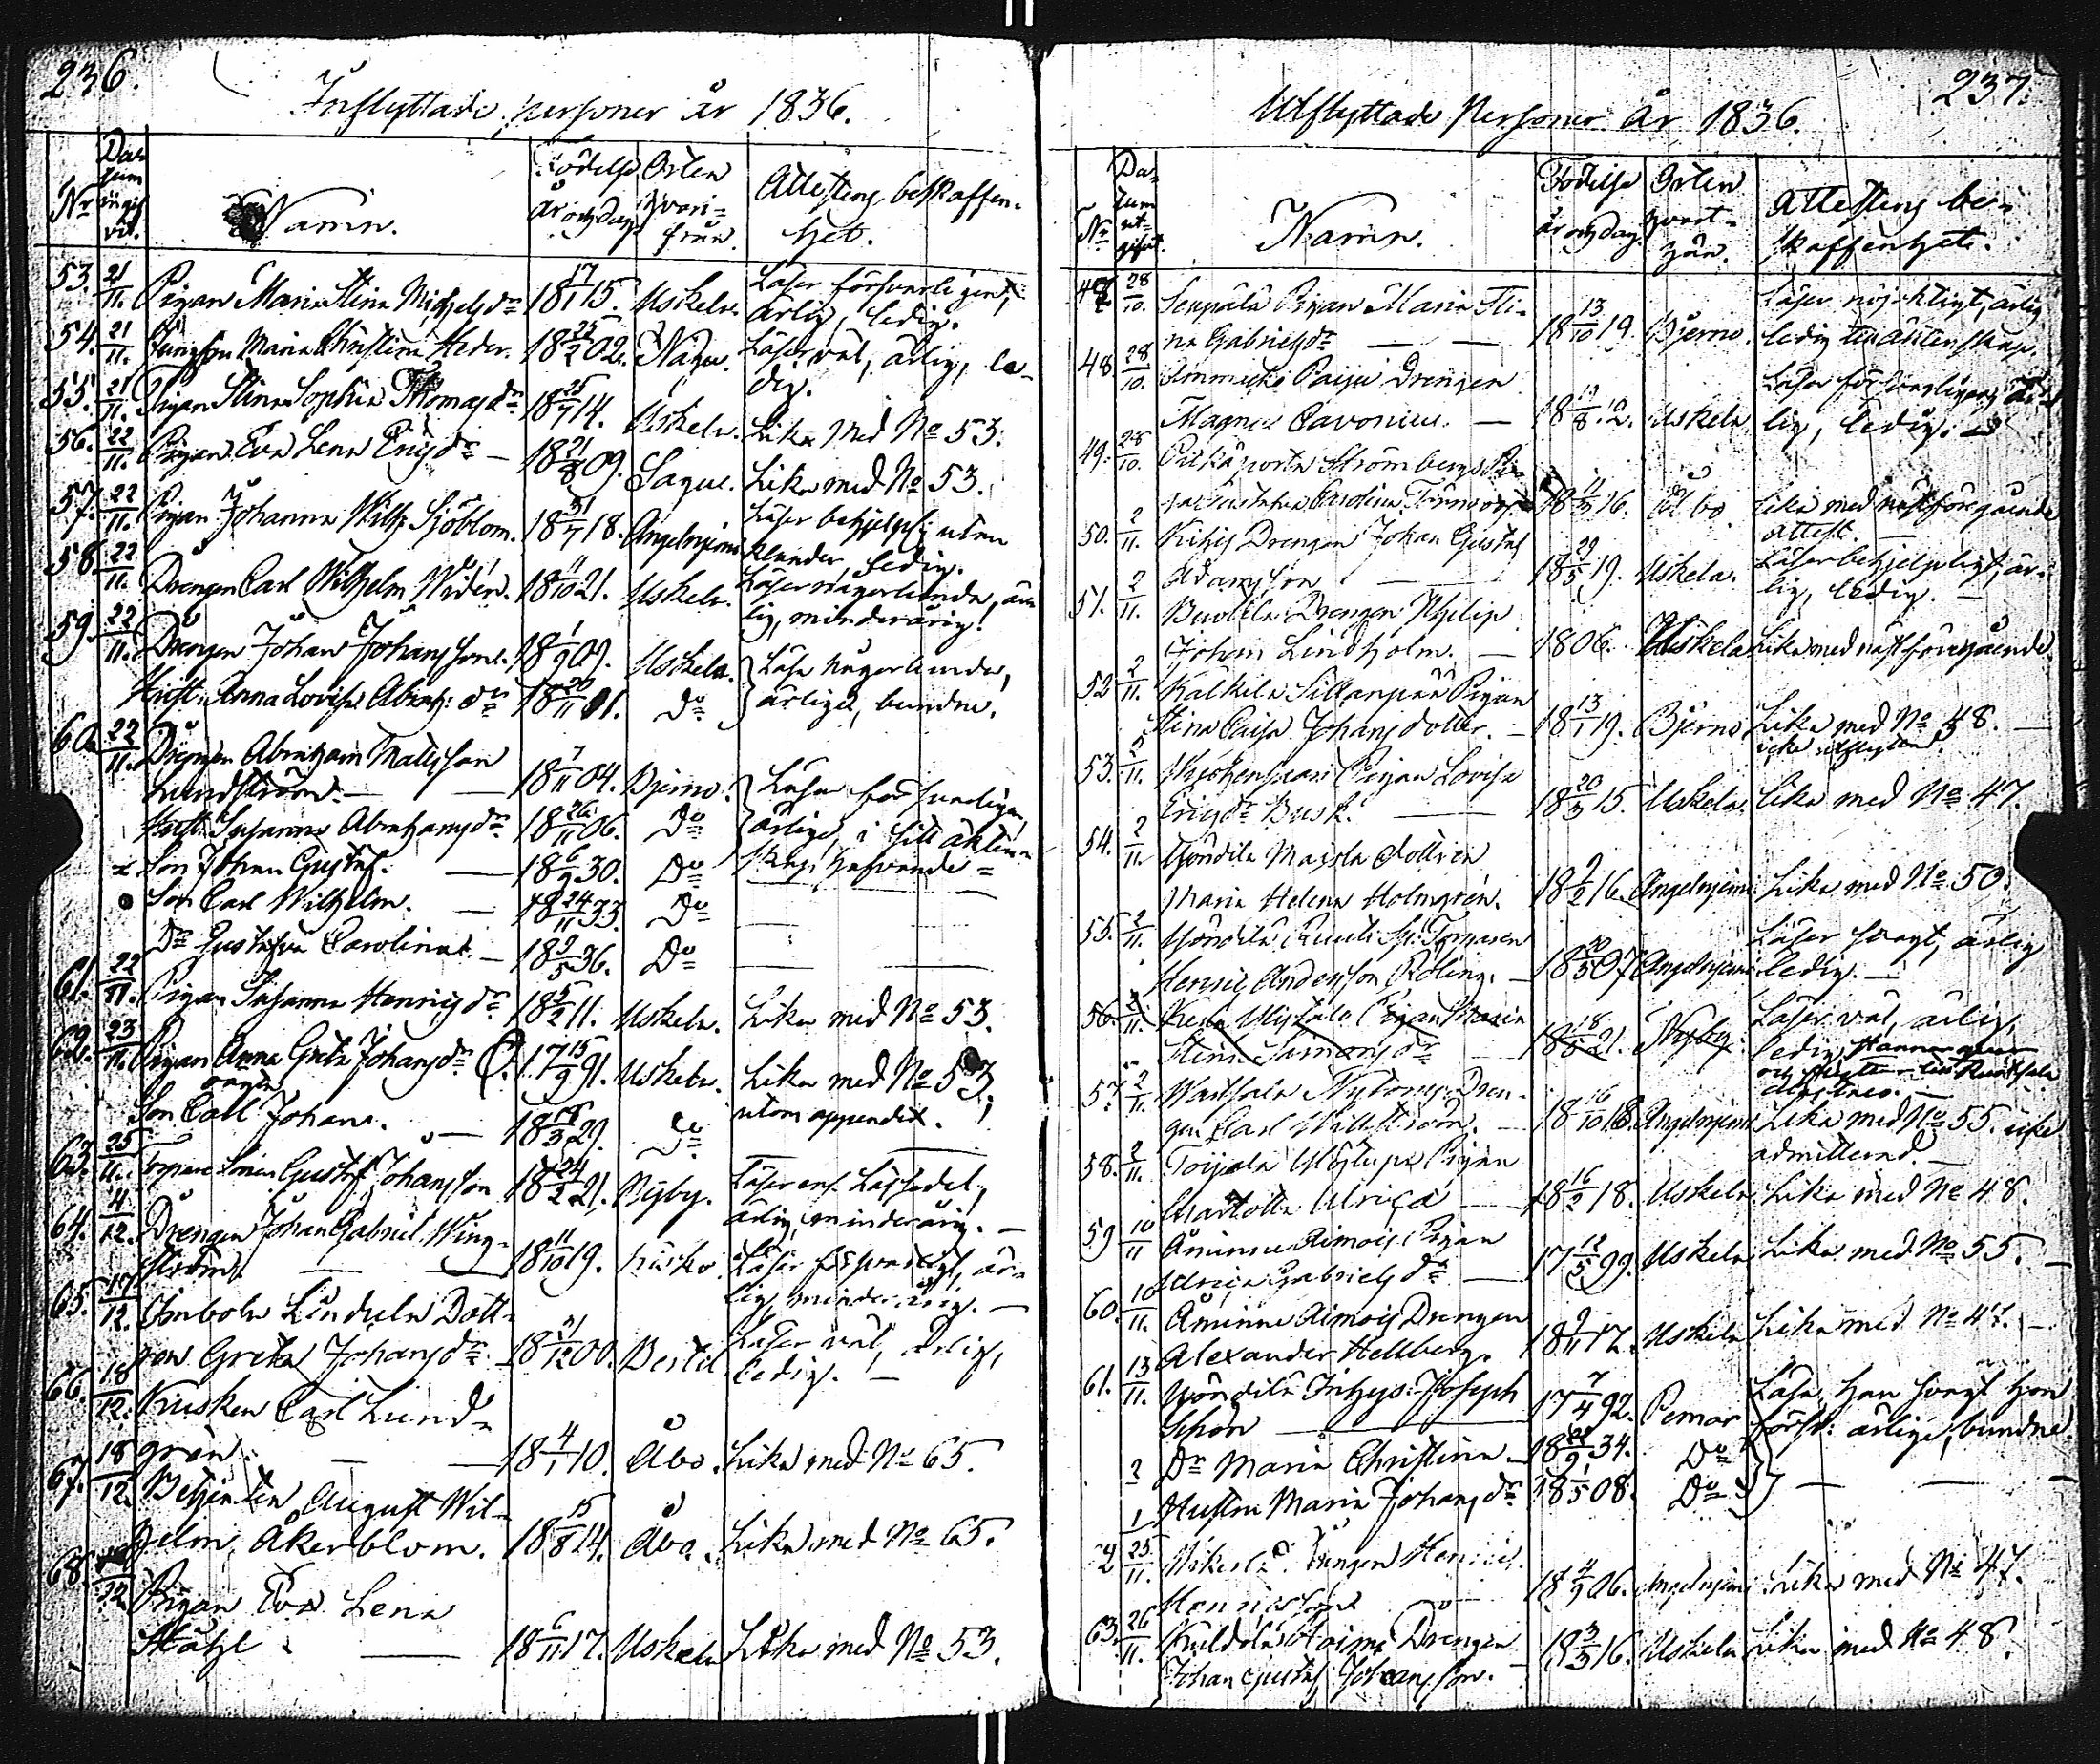 236.
Inflyttade personer år 1836.
Nr
Datum ingif vit.
Namn.
Födelse år och dag
Orten hvarifrån.
Attestens beskaffenhet.
53. 21/11. Pigan Maria Stina Michelsdr 18 17/1 15. Uskela. Läser försvarligent,
ärlig, ledig.
54. 21/11. Maria Christina Heder. 18 25/2 02. Nagu. Läser väl, ärlig, le-
dig.
55. 21/11. Pigan Stina Sophia Thomasdr 18 25/7 14. Uskela. Lika med No 53.
56. 22/11. Pigan Eva Lena Ericsdr – 18 21/8 09. Sagu. Lika med No 53.
57. 22/11. Pigan Johanna Wilh: Sjöblom. 18 31/7 18. Angelniemi Läser behjelpl: utan
klander, ledig.
58. 22/11. Drengen Carl Wilhelm Widén. 18 11/10 21. Uskela. Läser någorlunda, är-
lig, minderårig.
59. 22/11. Drengen Johan Johansson. 18 1/9 09. Uskela. Läsa någorlunda,
Hust: Anna Lovisa Abrah: dr 18 20/11 01. Do ärliga, bundne.
60. 22/11. Drengen Abraham Mattsson
Lundström. — 18 7/11 04. Bjerno. Läsa försvarligen,
Hust: Susanna Abrahamsdr 18 26/11 06. Do ärliga, i sitt äkten-
Son Johan Gustaf. — 18 6/9 30. Do skap hafvande
Son Carl Wilhelm. — 18 24/11 33. Do
Dr Gustafva Carolina. – 18 9/5 36. Do
61. 22/11. Pigan Susanna Henricsdr 18 5/2 11. Uskela. Lika med No 53.
62. 23/11. Pigan Anna Greta Johansdr 17 15/9 91. Uskela. Lika med No 53,
utom
Son Carl Johan. — 18 18/3 29. Do
63. 25/11. Gustaf Johansson 18 24/2 21. Nyby. Läser
ärlig, minderårig. –
64. 4/12. Drengen Johan Gabriel Wing-
ström. — 18 11/10 19. Kisko. Läser försvarligt, är-
lig, minderårig. –
65. 17/12. Lindula Dott-
ren Greta Johansdr 18 21/12 00. Bertil Läser väl, ärlig,
ledig. –
66. 18/12. Kusken Carl Lund-
grén. — 18 4/1 10. Åbo. Lika med No 65.
67. 18/12. Betjenten August Wil-
helm Åkerblom. 18 15/8 14. Åbo. Lika med No 65.
68. /12. Pigan Eva Lena
Ståhl — 18 6/11 17. Uskela Lika med No 53.
237.
Utflyttade Personer År 1836.
Nr
Datum utgifvit.
Namn.
Födelse år och dag.
Orten hvart- hän.
Attestens be-
skaffenhet.
47. 28/10. Pigan Maria Sti-
na Gabrielsdr — 18 13/10 19. Bjerno. Läser nöjaktigt, ärlig
ledig till äktenskap.
48. 28/10. Drengen
Magnus Pavonius. — 18 19/8 12. Uskela Läser försvarligen, är-
lig, ledig.
49. 28/10. Strömbergs Pi-
ga Gustafva Carolina 18 11/3 16. Åbo Lika med nästföregående
attest.
50. 2/11. Drengen Johan Gustaf
Adamsson 18 29/5 19. Uskela. Läser behjelpligt, är-
lig, ledig.
51. 2/11. Drengen Philip
Johan Lindholm. — 1806. Uskela Lika med nästföregående
52. 2/11. Sillanpää Pigan
Stina Caisa Johansdotter. – 18 13/1 19. Bjerno Lika med No 48.
icke utflyttad.
53. 2/11. Pigan Lovisa
Ericsdr Busk. — 18 20/3 15. Uskela. Lika med No 47.
54. 2/11. Dottren
Maria Helena Holmgrén. 18 9/2 16. Angelniemi Lika med No 50.
55. 2/11. Henric Andersson 18 30/5 07 Angelniemi Läser svagt, ärlig
ledig. —
56. 2/11. Pigan Maria
Stina Simonsdr 18 18/8 21. Nyby. Läser väl, ärlig,
ledig,
57. 2/11. Nytorp Dren-
gen Carl Willström. — 18 16/10 18. Angelniemi Lika med No 55. icke
admitterad. –
58. 2/11. Pigan
Charlotta Ulrica — 18 16/2 18. Uskela Lika med No 48.
59 10/11 Åminne Aimois Pigan
Gabrielsdr 17 12/5 99. Uskela Lika med No 55. –
60. 10/11. Åminne Aimois Drengen
Alexander Hellberg. 18 9/11 17. Uskela Lika med No 47. –
61. 13/11. Joseph
17 7/4 92. Pemar Läsa, han svagt hon
förs: ärliga, bundne
2 Dr Maria Christina – 18 22/9 34. Do
1 Hustru Maria Johansdr 18 1/5 08. Do
2 25/11. Drengen Henric
Henricsson 18 4/9 06. Angelniemi Lika med No 47.
63. 26/11. Drengen
Johan Gustaf Johansson. – 18 3/3 16. Uskela Lika med No 48.